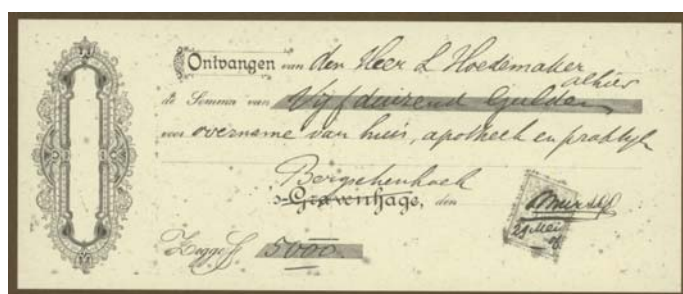 Ontvangen van den Heer L Hoedemaker
alhier
de Somma van Vijf duizend Gulden
voor overname van huis, apotheek en praktijk
Bergschenhoek
's-Gravenhage, den
29 Mei
Zegge ƒ 5000